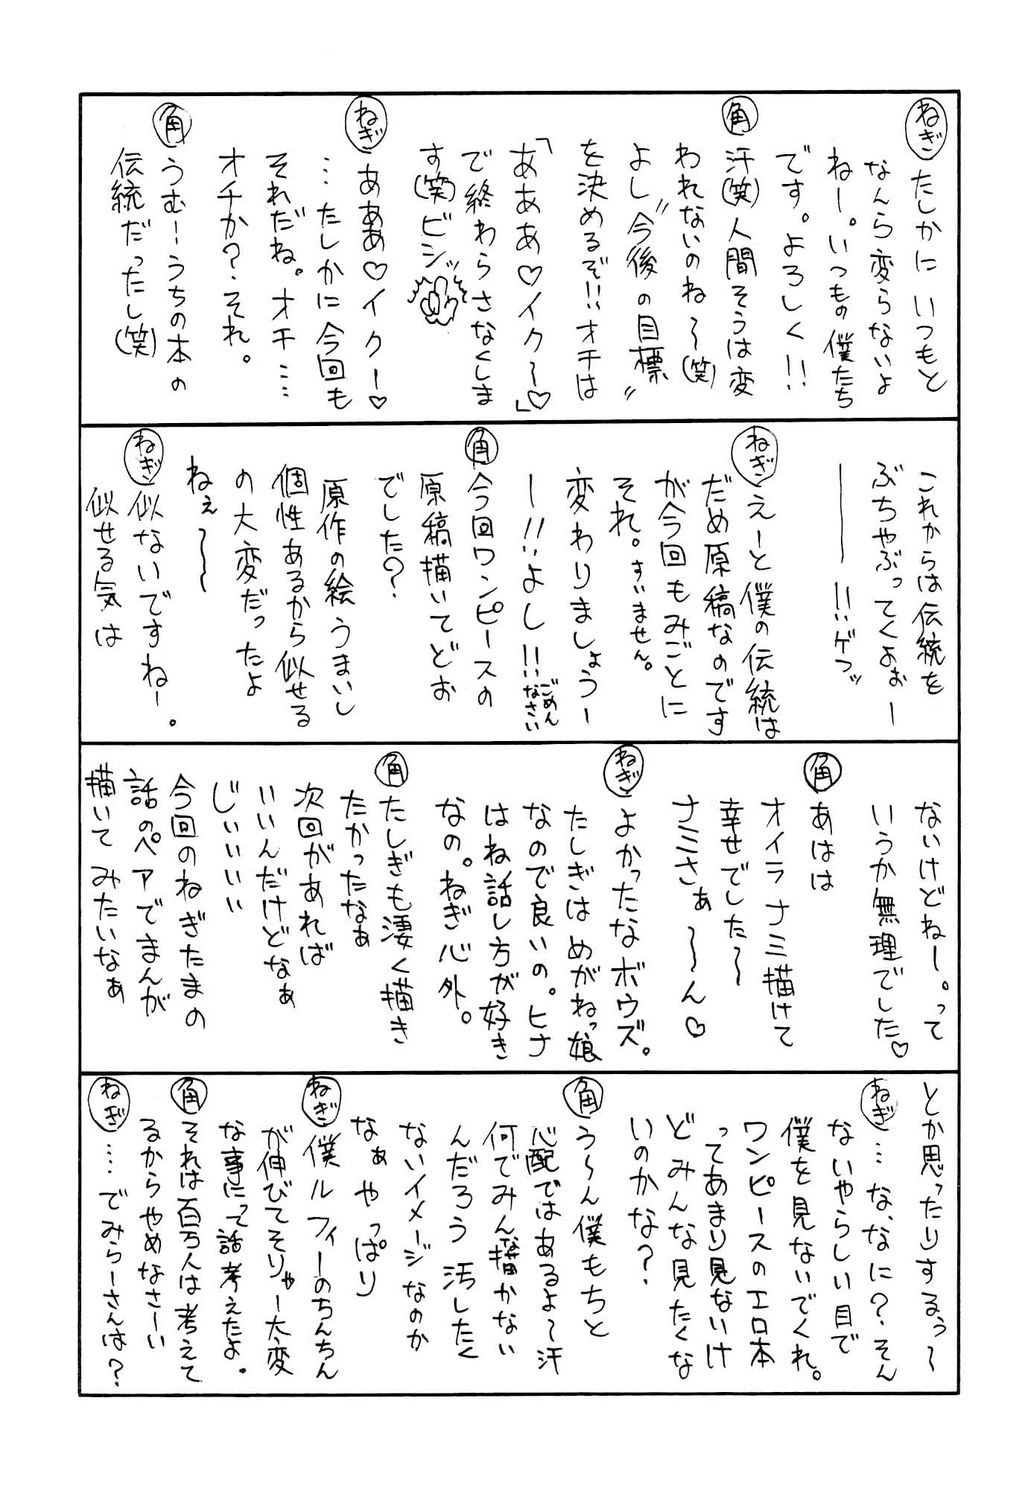 ねぎ たしかにいつもと
なんら変らないよ
ねー。いつもの僕たち
です。よろしく!!
角 汗(笑)人間そうは変
われないのね〜(笑)
よし"今後の目標"
を決めるぞ!!オチは
「あああ♡イク〜♡」
で終わらさなくしま
す(笑)ビシッ
ねぎ あああ♡イクー♡
…たしかに今回も
それだね。オチ…
オチか?それ。
角 うむーうちの本の
伝統だったし(笑)
これからは伝統を
ぶちやぶってくよぉー
――!!ゲフッ
ねぎ えーと僕の伝統は
だめ原稿なのです
が今回もみごとに
それ。すいません。
変わりましょうー
ー!!よし!!ごめんなさい
角 今回ワンピースの
原稿描いてどお
でした?
原作の絵うまいし
個性あるから似せる
の大変だったよ
ねぇ〜〜
ねぎ 似ないですねー。
似せる気は
ないけどねー。って
いうか無理でした♡
角 あはは
オイラナミ描けて
幸せでした〜
ナミさぁ〜〜ん♡
ねぎ よかったなボウズ。
たしぎはめがねっ娘
なので良いの。ヒナ
はね話し方が好き
なの。ねぎ心外。
角 たしぎも凄く描き
たかったなぁ
次回があれば
いいんだけどなぁ
じぃぃぃぃ
今回のねぎたまの
話のペアでまんが
描いてみたいなぁ
とか思ったりするぅ〜
ねぎ …な、なに?そん
ないやらしい目で
僕を見ないでくれ。
ワンピースのエロ本
ってあまり見ないけ
どみんな見たくな
いのかな?
角 う〜ん僕もちと
心配ではあるよ〜汗
何でみんな描かない
んだろう汚したく
ないイメージなのか
なぁやっぱり
ねぎ 僕ルフィーのちんちん
が伸びてそりゃー大変
な事にって話考えたよ。
角 それは百万人は考えて
るからやめなさーい
ねぎ ……でみらーさんは?